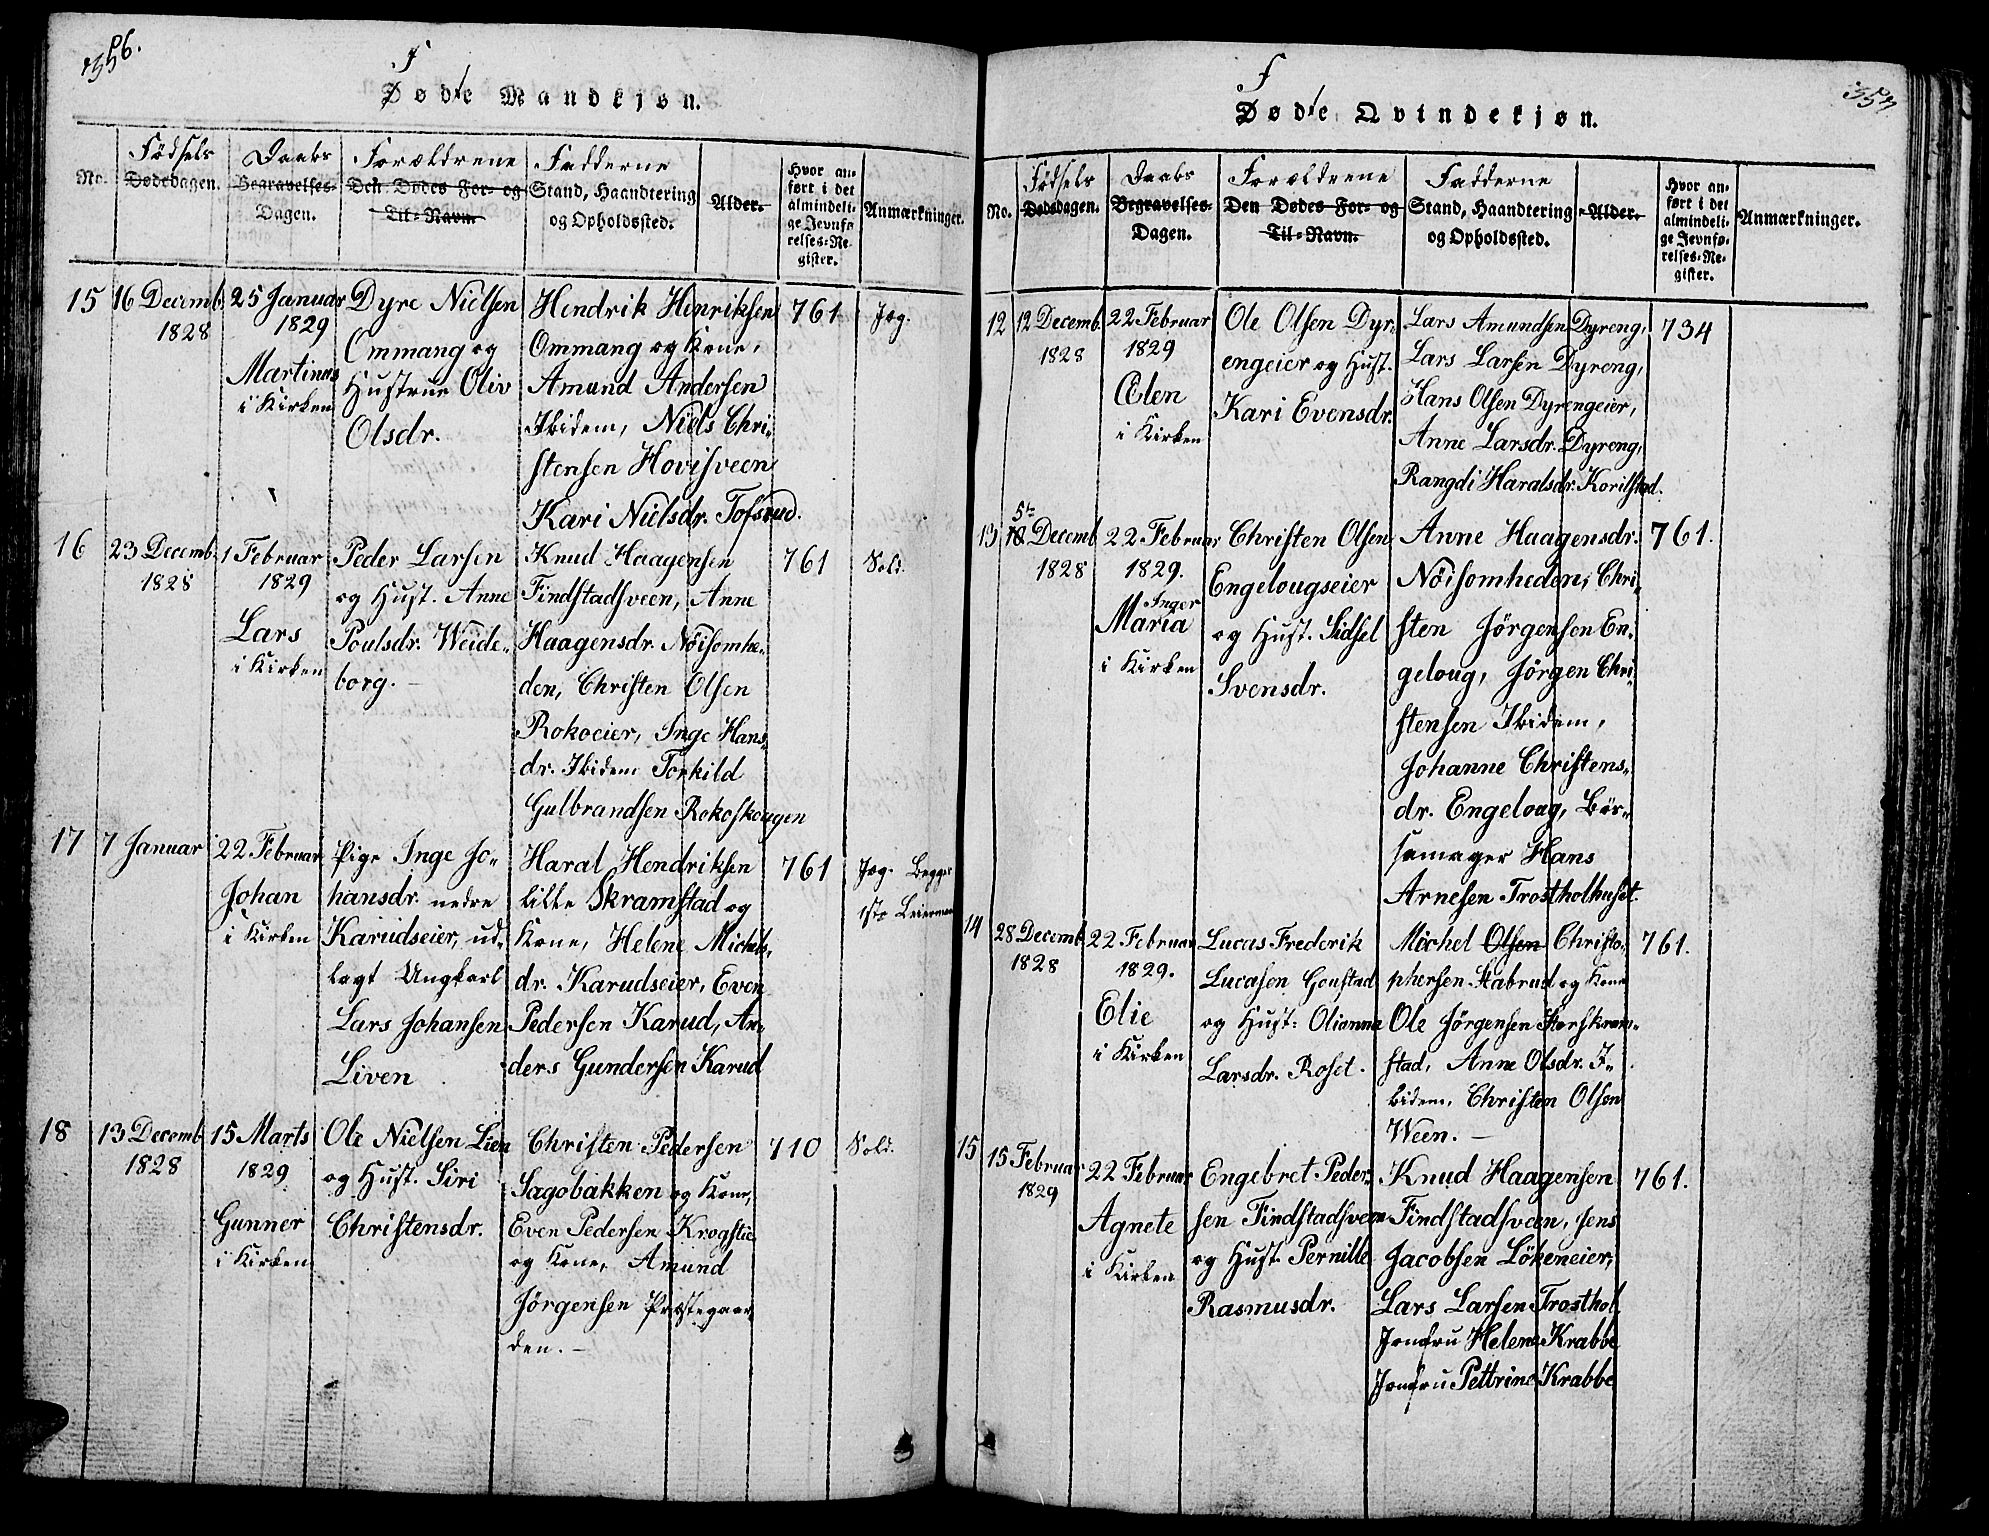 F
Døde Mandkjøn.
No.
Fødsels
Dødsdagen.
Daabs
Begravelses-
Dagen.
Forældrene
Den Dødes For- og
Til-Navn.
Fadderne
Stand, Haandtering
og Opholdssted.
Alder.
Hvor an-
ført i det
almindeli-
ge Jevnfø-
relses-Re-
gister.
Anmærkninger.
15
16 Decemb.
1828
25 Januar
1829
Martinus
i Kirken
Dyre Nielsen
Ommang og
Hustrue Oliv
Olsdr.
Hendrik Henriksen
Ommang og Kone,
Amund Andersen
Ibidem, Niels Chri-
stensen Hovisveen
Kari Nielsdr. Tofsrud.
761
Jæg.
16
23 Decemb.
1828
1 Februar
1829
Lars
i Kirken
Peder Larsen
og Hust. Anne
Poulsdr. Weide-
borg.
Knud Haagensen
Findstadsveen, Anne
Haagensdr. Nöisomhe-
den, Christen Olsen
Rokoeier, Inge Hans-
dr. Ibidem Torkild
Gulbrandsen Rokoskougen
761
Sold.
17
7 Januar
22 Februar
Johan
i Kirken
Pige Inge Jo-
hansdr. nedre
Karudseier, ud-
lagt Ungkarl
Lars Johansen
Liven
Haral Hendriksen
lille Skramstad og
Kone, Helene Michels-
dr. Karudseier, Even
Pedersen Karud, An-
ders Gundersen Karud
761
Jæg. Begges
1ste Leiermaal
18
13 Decemb.
1828
15 Marts
1829
Gunner
i Kirken
Ole Nielsen Lien
og Hust. Siri
Christensdr.
Christen Pedersen
Sagobakken og Kone,
Even Pedersen Krogstie
og Kone, Amund
Jörgensen Præstegaar-
den.
710
Sold.
F
Døde Qvindekjøn.
No.
Fødsels
Dødsdagen.
Daabs
Begravelses-
Dagen.
Forældrene
Den Dødes For- og
Til-Navn.
Fadderne
Stand, Haandtering
og Opholdssted.
Alder.
Hvor an-
ført i det
almindeli-
ge Jevnfø-
relses-Re-
gister.
Anmærkninger.
12
12 Decemb.
1828
22 Februar
1829
Elen
i Kirken
Ole Olsen Dyr-
engeier og Hust.
Kari Evensdr.
Lars Amundsen Dyreng,
Lars Larsen Dyreng,
Hans Olsen Dyrengeier,
Anne Larsdr. Dyreng,
Rangdi Haralsdr. Korilstad.
734
13
5te
Decemb
1828
22 Februar
1829.
Inger
Maria
i Kirken
Christen Olsen
Engelougseier
og Hust. Sidsel
Svensdr.
Anne Haagensdr.
Nöisomheden, Chri-
sten Jörgensen En-
geloug, Jörgen Chri-
stensen Ibidem,
Johanne Christens-
dr. Engeloug, Bös-
semager Hans
Arnesen Trostholhuset.
761.
14
28 Decemb.
1828
22 Februar
1829.
Elie
i Kirken
Lucas Frederik
Lucasen Gonstad
og Hust: Olianna
Larsdr. Roset.
Michel Olsen Christo-
phersen Stabrud og Kone
Ole Jörgensen Storskram-
stad, Anne Olsdr. I-
bidem. Christen Olsen
Ween.
761.
15
15 Februar
1829
22 Februar
Agnete
i Kirken
Engebret Peder-
sen Findstadsveen
og Hust. Pernille
Rasmusdr.
Knud Haagensen
Findstadsveen, Jens
Jacobsen Lökeneier,
Lars Larsen Trosthol
Jomfru Helene Krabbe
Jomfru Pettrine Krabbe
761.